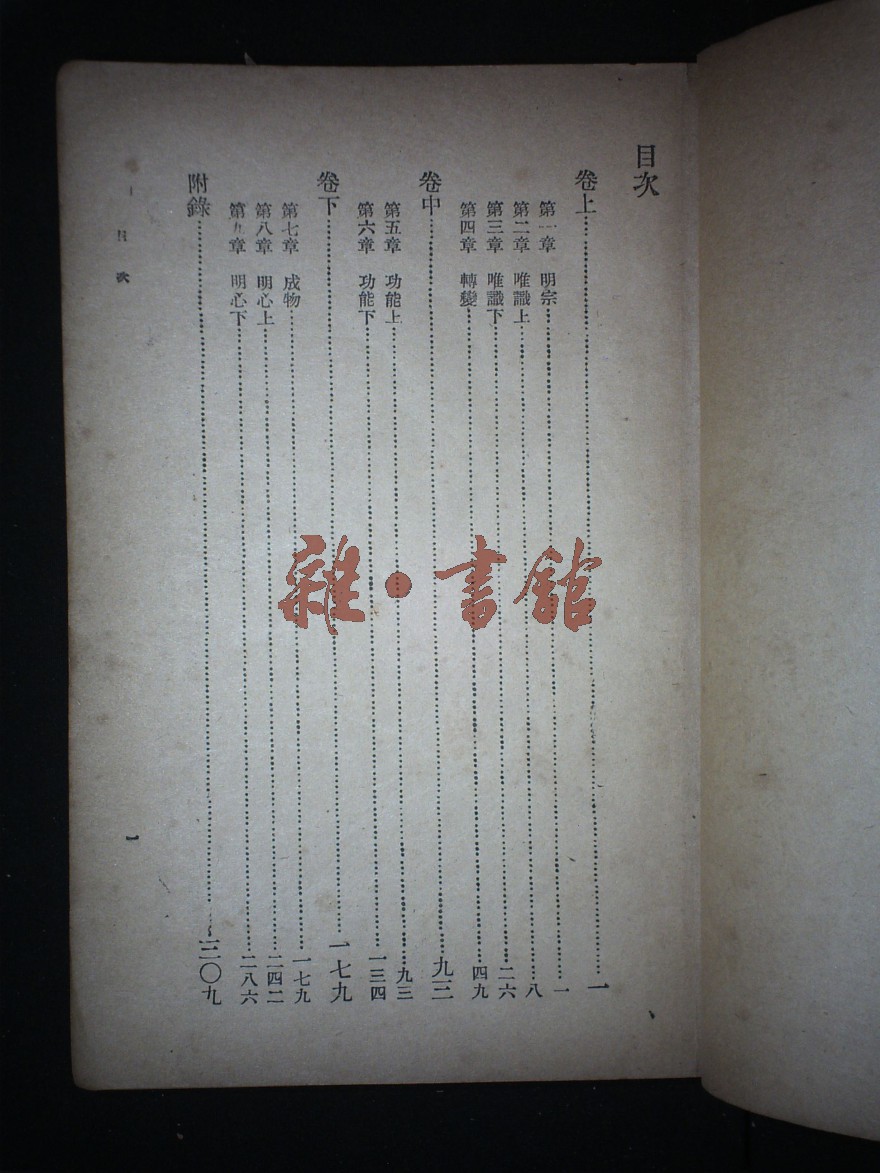 目次
卷上……一
第一章 明宗……一
第二章 唯識上……八
第三章 唯識下……二六
第四章 轉變……四九
卷中……九三
第五章 功能上……九三
第六章 功能下……一三四
卷下……一七九
第七章 成物……一七九
第八章 明心上……二四二
第九章 明心下……二八六
附錄……三〇九
目次
一
雜·書館